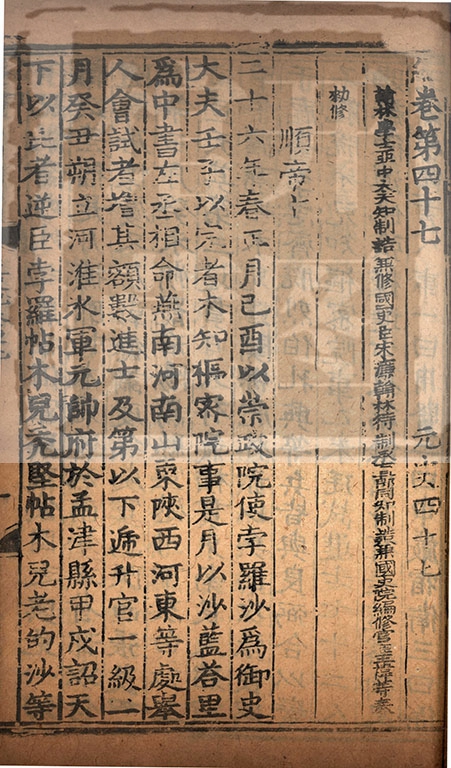 卷第四十七　元史四十七
翰林學士亞中大夫知制誥兼修國史臣宋濂翰林待制承直郎同知制誥兼國史院編修官臣王禕等奉
勑修
順帝十
二十六年春正月己酉以崇政院使孛羅沙爲御史
大夫壬子以完者木知樞密院事是月以沙藍荅里
爲中書左丞相命燕南河南山東陝西河東等處舉
人會試者增其額數進士及第以下遞升官一級二
月癸丑朔立河淮水軍元帥府於孟津縣甲戌詔天
下以比者逆臣孛羅帖木兒禿堅帖木兒老的沙等